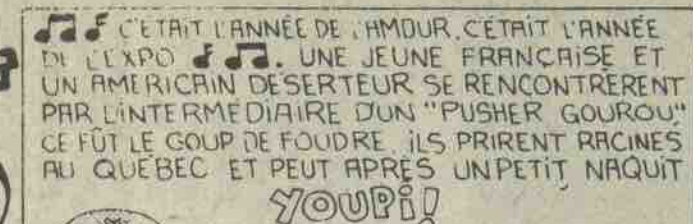 C'ÉTAIT L'ANNÉE DE L'AMOUR. C'ÉTAIT L'ANNÉE
DE L'EXPO. UNE JEUNE FRANÇAISE ET
UN AMERICAIN DESERTEUR SE RENCONTRÈRENT
PAR L'INTERMÉDIAIRE D'UN "PUSHER GOUROU"
CE FÛT LE COUP DE FOUDRE. ILS PRIRENT RACINES
AU QUÉBEC ET PEUT APRÈS UN PETIT NAQUIT
YOUPi!